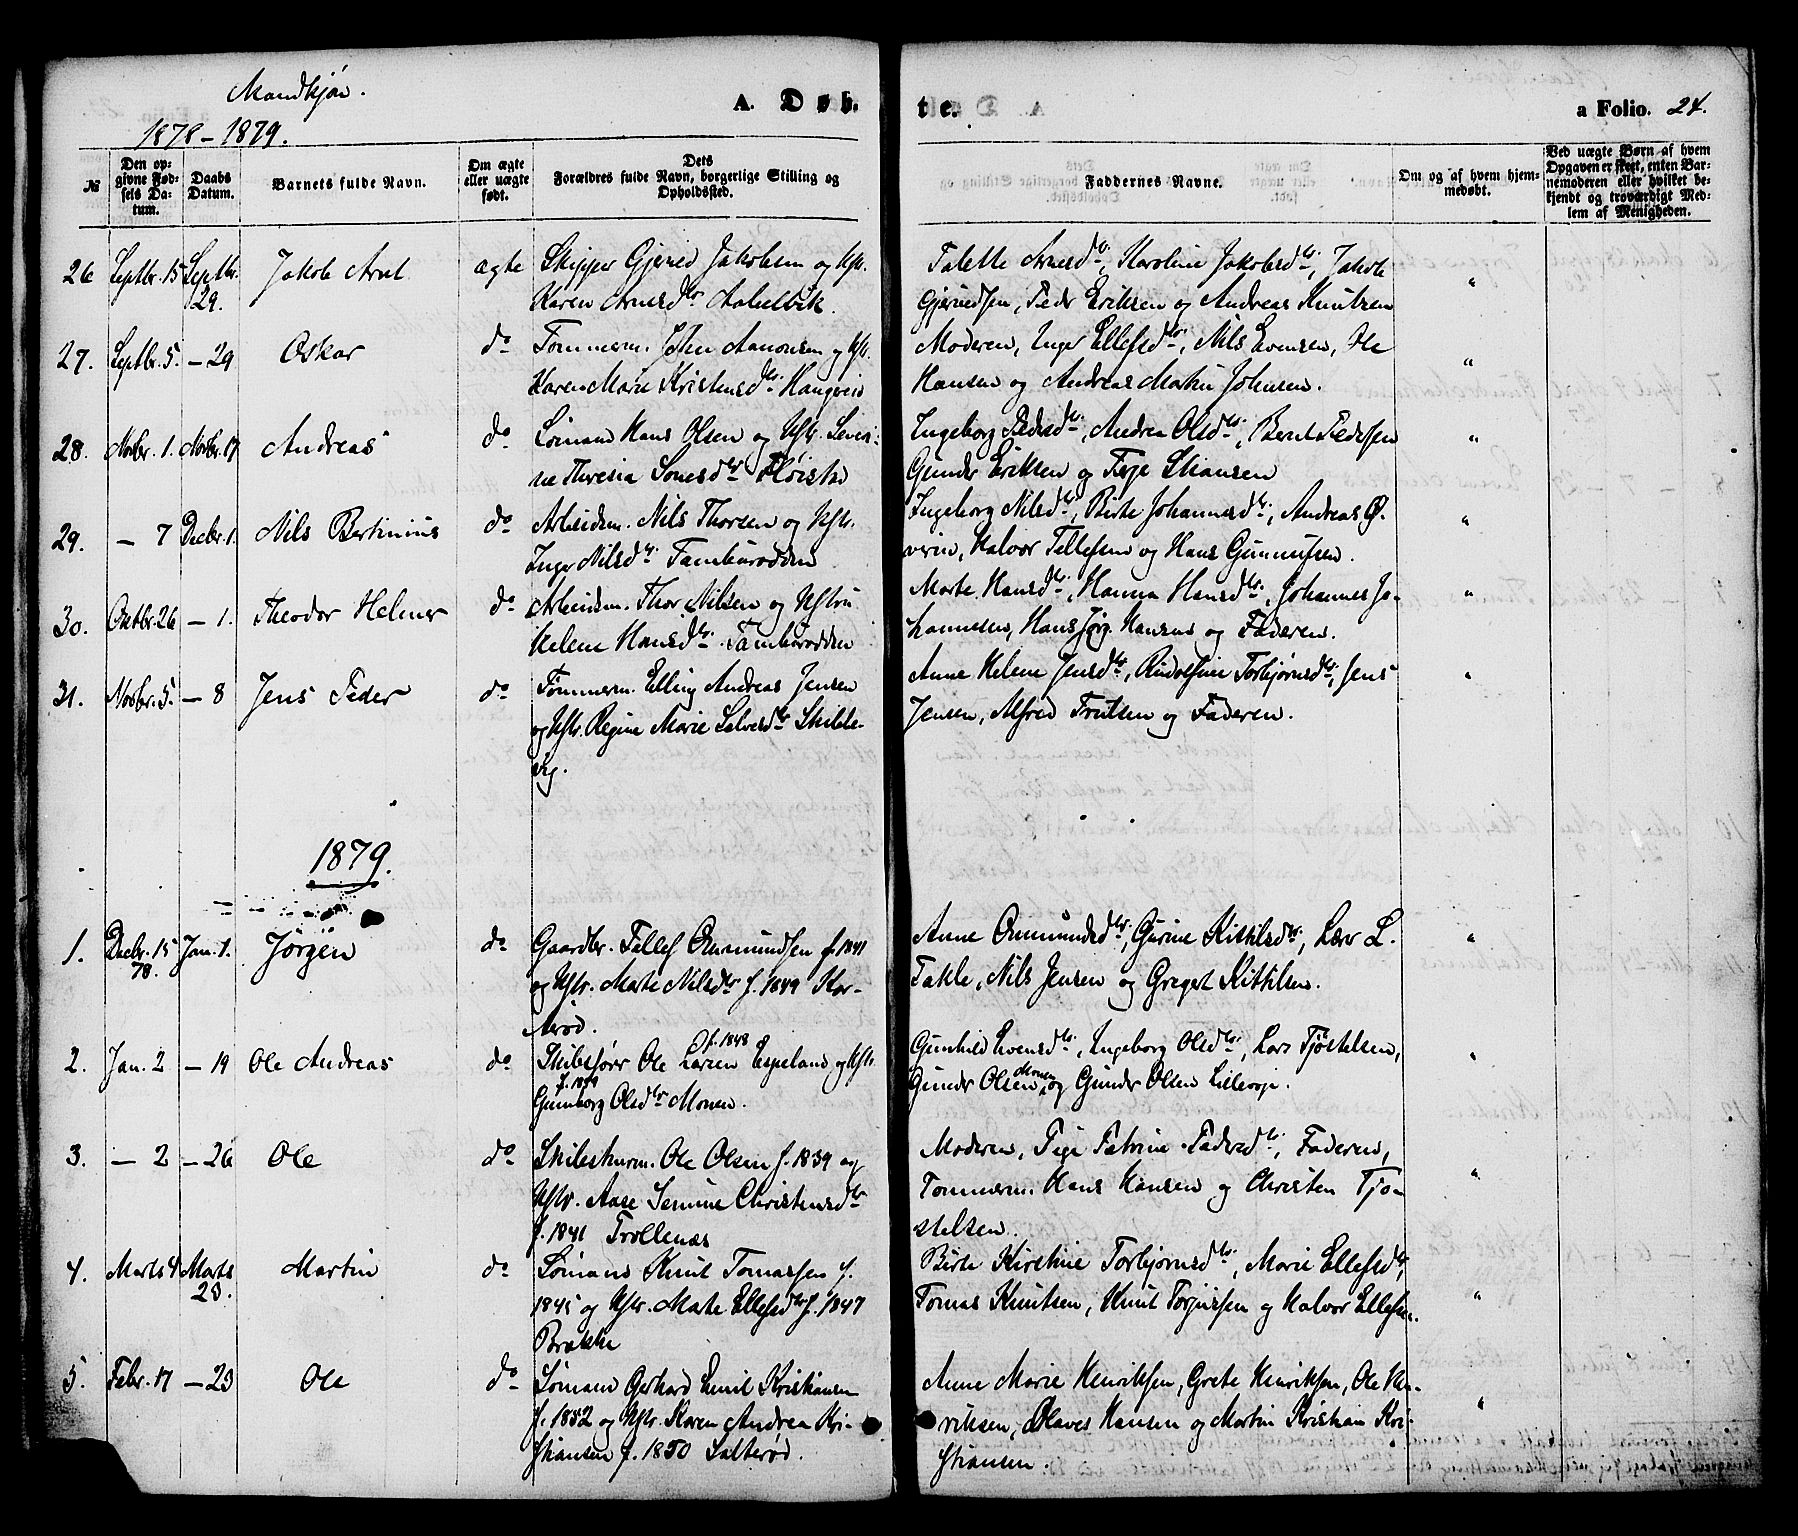 Mandkjøn.
1878-1879.
A. Døb-
te.
a Folio. 24.
№
Den op-
givne Fød-
sels Da-
tum.
Daabs
Datum.
Barnets fulde Navn.
Om ægte
eller uægte
født.
Dets
Forældres fulde Navn, borgerlige Stilling og
Opholdssted.
Faddernes Navne.
Om og af hvem hjem-
medøbt.
Ved uægte Børn af hvem
Opgaven er skeet, enten Bar-
nemoderen eller hvilket be-
kjendt og troværdigt Med-
lem af Menigheden.
26 Septbr. 15 Septbr. 29. Jakob Arnt ægte
Skipper Gjerued Jakobsen og Hstr.
Karen Arnesdtr
Talette Arnesdtr, Karoline Jakobsdtr, Jakob
Gjeruedsen, Peder Eriksen og Andreas Knutsen
"
27. Septbr. 5. - 29 Oskar do
Tømmerm. John Aanonsen og Hstr.
Karen Marie Kristensdtr.
Moderen, Inger Ellefsdtr, Nils Evensen, Ole
Hansen og Andreas Martin Johnsen.
"
28. Novbr. 1. Novbr. 17 Andreas do
Sømand Hans Olsen og Hstr. Severi-
ne Theresia Fløistad
Ingeborg Pedersdtr, Andrea Olsdtr, Bernt Pedersen
Gunder Eriksen og Terje
"
29. - 7 Decbr. 1. Nils Bertinius do
Arbeidsm. Nils Thorsen og Hstr.
Inger Nilsdtr.
Ingeborg Nilsdtr, Birte Johannesdtr, Andreas Ø-
verin, Halvor Tellefsen og Hans Gunnufsen.
"
30. Octbr. 26 - 1. Theodor Helmer do
Arbeidsm. Thor Nilsen og Hstru
Helene Hansdtr.
Marte Hansdtr, Hanna Hansdtr, Johannes Jo-
hannesen, Hans Jørg. Hansen og Faderen.
"
31. Novbr. 5. - 8 Jens Peder do
Tømmerm. Elling Andreas Jensen
og Hstr. Regine Marie Skibbe-
vig.
Anne Helene Jensdtr, Torbjørnsdtr, Jens
Jensen, Alfred og Faderen.
"
1879.
1. Decbr. 15 78. Jan. 1. Jørgen do
Gaardbr. Tellef Osmundsen f. 1841
og Hstr. Marte Nilsdtr f. 1849
Anne Osmundsdtr, Gurine Kittilsdtr, Lærer L.
Takle, Nils Jensen og Gregert Kittilsen.
"
2. Jan. 2 - 19 Ole Andreas do
f. 1848
Skibsfører Ole Larsen Espeland og Hstr.
Gunborg Olsdtr Monen.
Gunhild Evensdtr, Ingeborg Olsdtr, Lars Tjøstelsen,
Gunder Olsen Monen og Gunder Olsen
"
3. - 2 - 26 Ole do
Skibsturm. Ole Olsen f. 1839 og
Hstr. Aase Christensdtr
f. 1841 Trollenæs
Moderen, Petrine Pedersdtr, Faderen,
Tømmerm. Hans Hansen og Christen Tjø-
stelsen.
"
4. Marts 4 Marts 23. Martin do
Sømand Knut Tomassen f.
1845 og Hstr. Marte Ellefsdtr f. 1847
Brække
Birte Kirstine Torbjørnsdtr, Marie Ellefsdtr,
Tomas Knutsen, Knut og Halvor Ellefsen.
"
5. Febr. 17 - 23 Ole do
Sømand Gerhard Emil Kristiansen
f. 1852 og Hstr. Karen Andrea Kri-
stiansen f. 1850 Salterød.
Anne Marie Henriksen, Grete Henriksen, Ole Hen-
riksen, Olaves Hansen og Martin Kristian Kri-
stiansen.
"